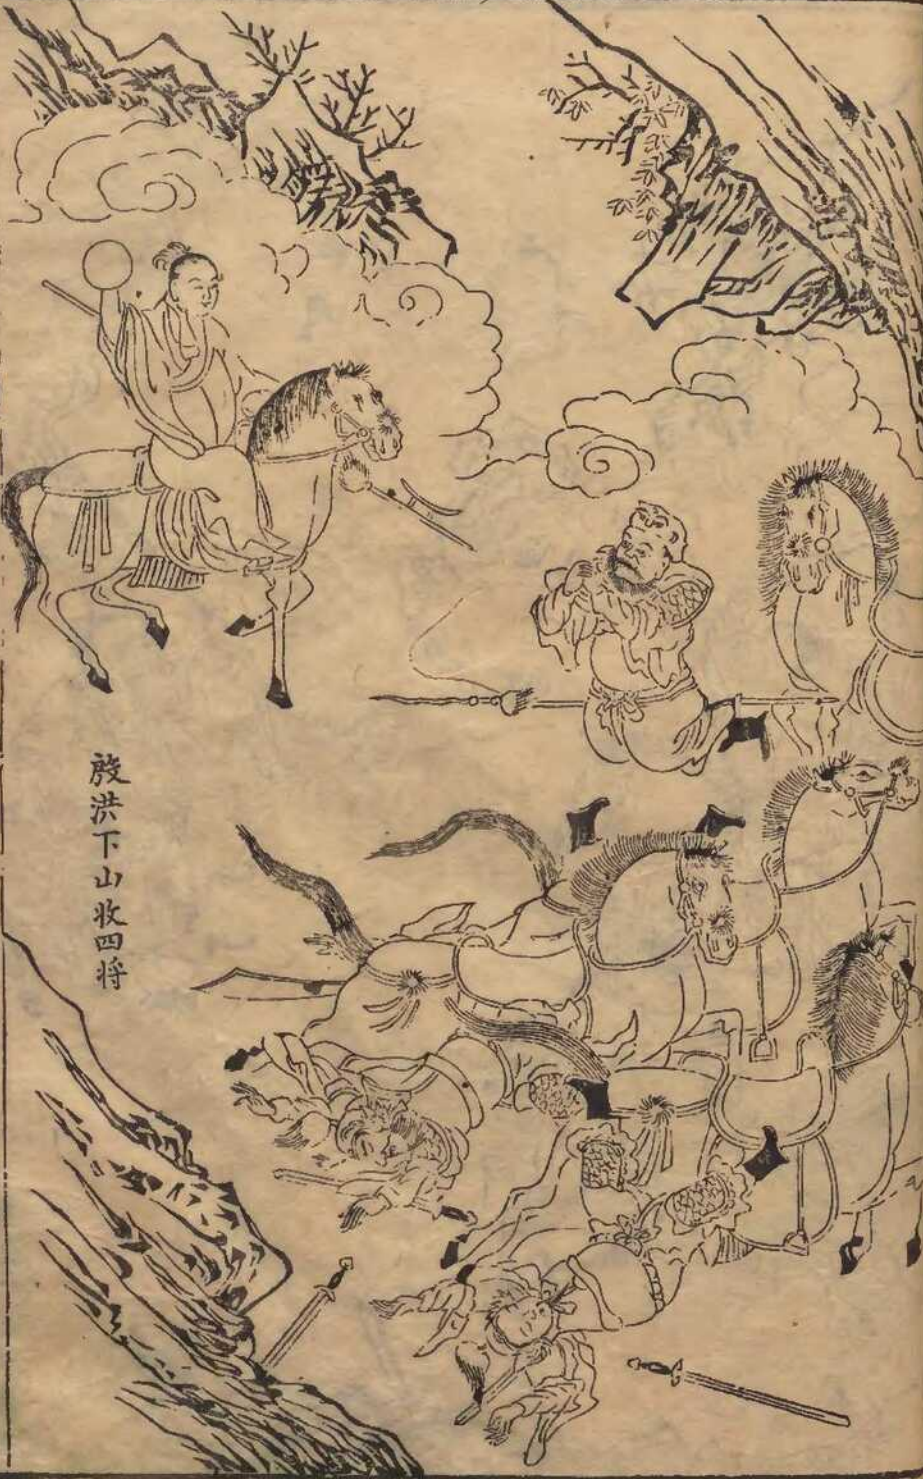 殷洪下山收四将